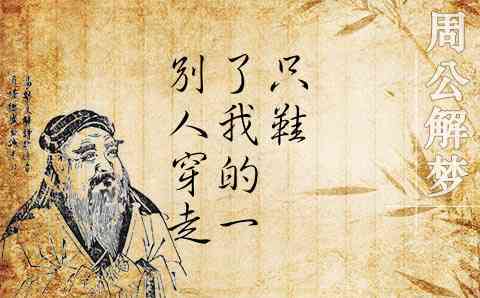 别人穿走
了我的一
只鞋
周公解梦